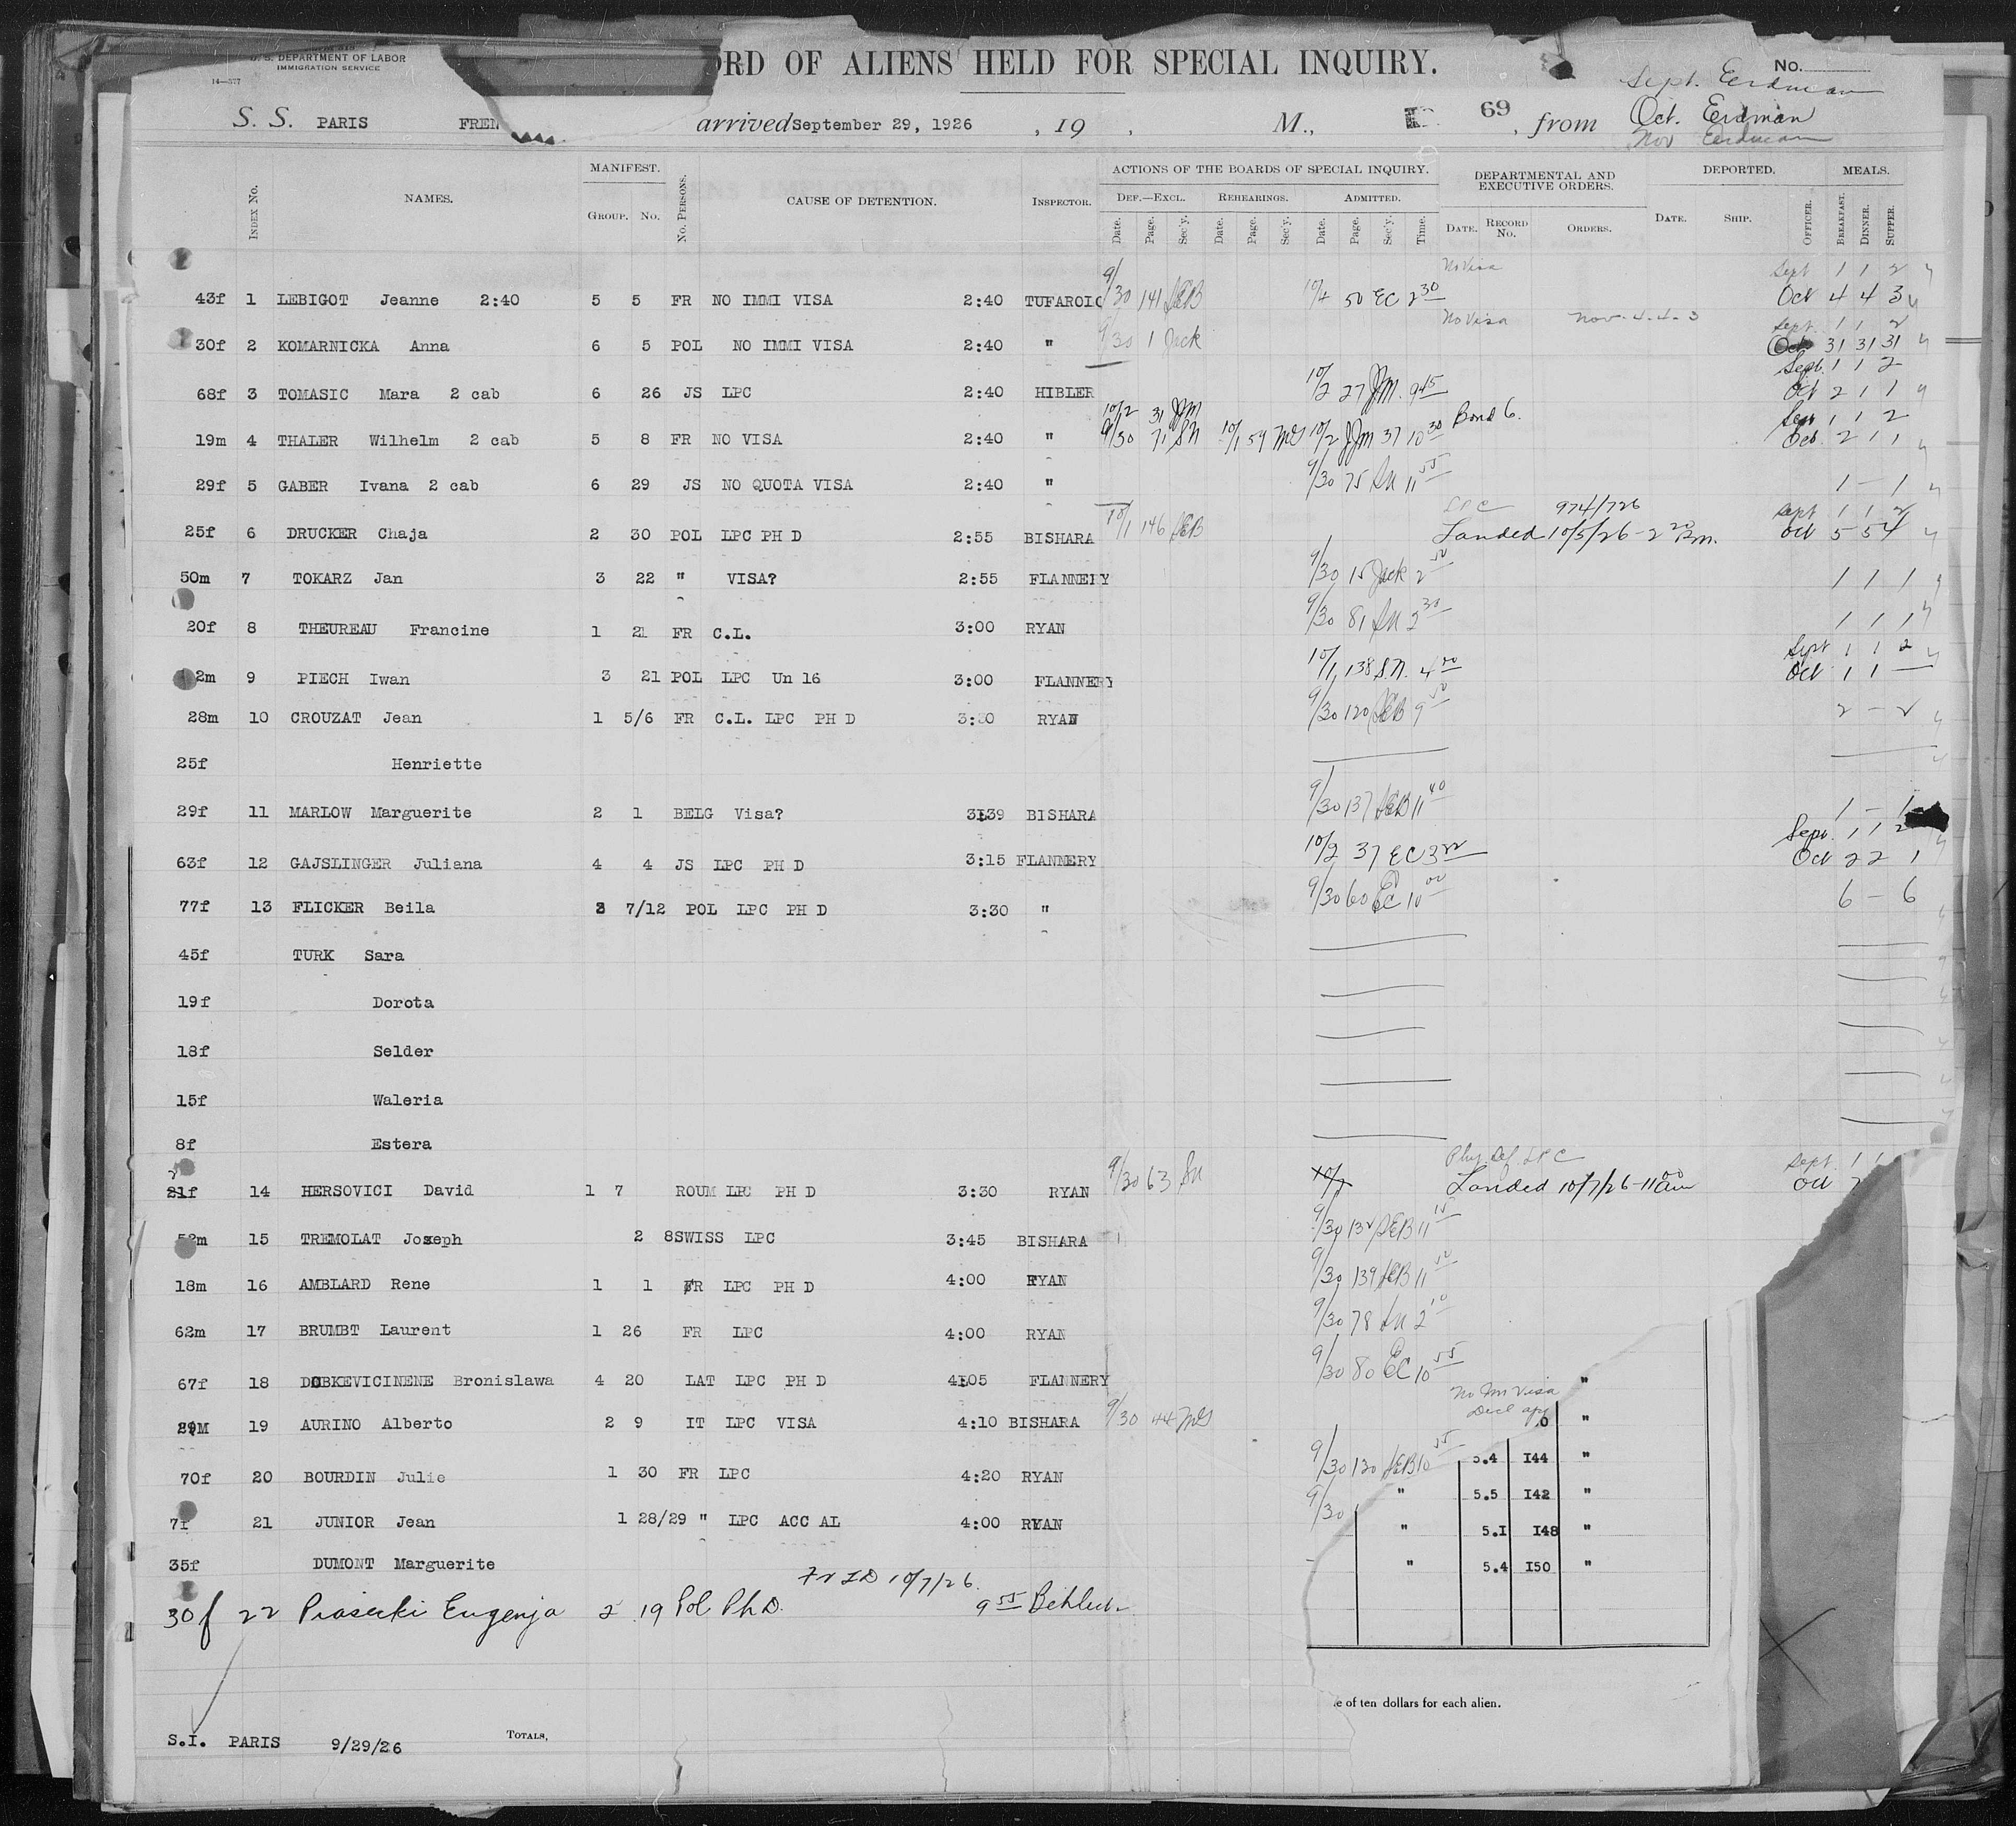 U. S. DEPARTMENT OF LABOR
IMMIGRATION SERVICE
14—377
ORD OF ALIENS HELD FOR SPECIAL INQUIRY.
No.
Sept. Eerdman
S. S. PARIS FREN arrived September 29, 1926 , 19 , M., 69 , from Oct. Erdman
Nov Eerdman
INDEX No. NAMES. MANIFEST. GROUP. No. No. PERSONS. CAUSE OF DETENTION. INSPECTOR. ACTIONS OF THE BOARDS OF SPECIAL INQUIRY. DEPARTMENTAL AND EXECUTIVE ORDERS. DEPORTED. MEALS.
DEF.—EXCL. REHEARINGS. ADMITTED.
Date. Page. Sec'y. Date. Page. Sec'y. Date. Page. Sec'y. Time. DATE. RECORD No. ORDERS. DATE. SHIP. OFFICER. BREAKFAST. DINNER. SUPPER.
No Visa Sept 1 1 2
43f 1 LEBIGOT Jeanne 2:40 5 5 FR NO IMMI VISA 2:40 TUFAROLO 9/30 141 SEB 10/4 50 EC 2 30 Oct 4 4 3
No Visa Nov - 4 - 4 - 3 Sept. 1 1 2
30f 2 KOMARNICKA Anna 6 5 POL NO IMMI VISA 2:40 " 9/30 1 Jack Oct 31 31 31
Sept. 1 1 2
68f 3 TOMASIC Mara 2 cab 6 26 JS LPC 2:40 HIBLER 10/2 27 JJM. 9 45 Oct 2 1 1
10/2 31 JJM Bond 6. Sept 1 1 2
19m 4 THALER Wilhelm 2 cab 5 8 FR NO VISA 2:40 " 9/30 71 SN 10/1 59 McG 10/2 JJM 37 10 30 Oct. 2 1 1
29f 5 GABER Ivana 2 cab 6 29 JS NO QUOTA VISA 2:40 " 9/30 75 SN 11 55 1 - 1
LPC 974/726 Sept 1 1 2
25f 6 DRUCKER Chaja 2 30 POL LPC PH D 2:55 BISHARA 10/1 146 SEB Landed 10/5/26 - 2 20 Pm. Oct 5 5 4
50m 7 TOKARZ Jan 3 22 " VISA? 2:55 FLANNERY 9/30 15 Jack 2 50 1 1 1
20f 8 THEUREAU Francine 1 21 FR C.L. 3:00 RYAN 9/30 81 SN 2 30 1 1 1
Sept 1 1 2
2m 9 PIECH Iwan 3 21 POL LPC Un 16 3:00 FLANNERY 10/1 138 S.N. 4 00 Oct 1 1 —
28m 10 CROUZAT Jean 1 5/6 FR C.L. LPC PH D 3:30 RYAN 9/30 120 SEB 9 50 2 - 2
25f Henriette
29f 11 MARLOW Marguerite 2 1 BELG Visa? 3:39 BISHARA 9/30 137 SEB 11 40 1 - 1
Sept. 1 1 2
63f 12 GAJSLINGER Juliana 4 4 JS LPC PH D 3:15 FLANNERY 10/2 37 EC 3 Oct 2 2 1
77f 13 FLICKER Beila 3 7/12 POL LPC PH D 3:30 " 9/30 60 EC 10 00 6 - 6
45f TURK Sara
19f Dorota
18f Selder
15f Waleria
8f Estera
Phy. Def. LPC Sept. 1 1
21f 14 HERSOVICI David 1 7 ROUM LPC PH D 3:30 RYAN 9/30 63 SN 10/7 Landed 10/7/26 - 11 00 am Oct
2m 15 TREMOLAT Joseph 2 8 SWISS LPC 3:45 BISHARA 9/30 132 SEB 11 15
18m 16 AMBLARD Rene 1 1 FR LPC PH D 4:00 RYAN 9/30 139 SEB 11 50
62m 17 BRUMBT Laurent 1 26 FR LPC 4:00 RYAN 9/30 78 SN 2 10
67f 18 DOBKEVICINENE Bronislawa 4 20 LAT LPC PH D 4:05 FLANNERY 9/30 80 EC 10 55 "
No Im Visa
29M 19 AURINO Alberto 2 9 IT LPC VISA 4:10 BISHARA 9/30 44 McG .0 "
70f 20 BOURDIN Julie 1 30 FR LPC 4:20 RYAN 9/30 130 SEB 10 55 5.4 I44 "
9/30 " 5.5 I42 "
7f 21 JUNIOR Jean 1 28/29 " LPC ACC AL 4:00 RYAN " 5.I I48 "
35f DUMONT Marguerite " 5.4 I50 "
10/7/26
30f 22 Piasecki Eugenja 2 19 Pol Ph D. 9 55
e of ten dollars for each alien.
S.I. PARIS 9/29/26 TOTALS,